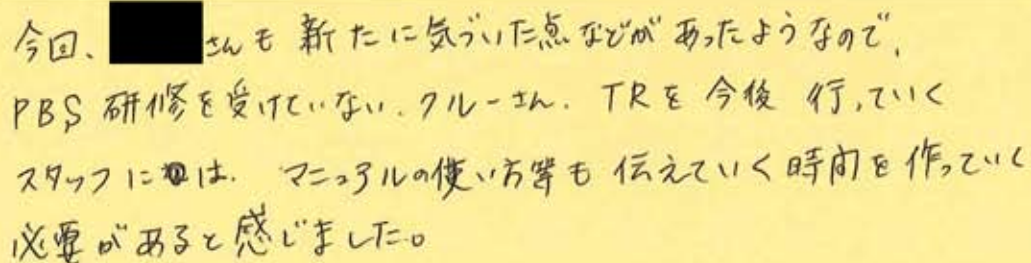 今回、さんも新たに気づいた点などがあったようなので、
PBS研修を受けていない、クルーさん、TRを今後行っていく
スタッフには、マニュアルの使い方等も伝えていく時間を作っていく
必要があると感じました。